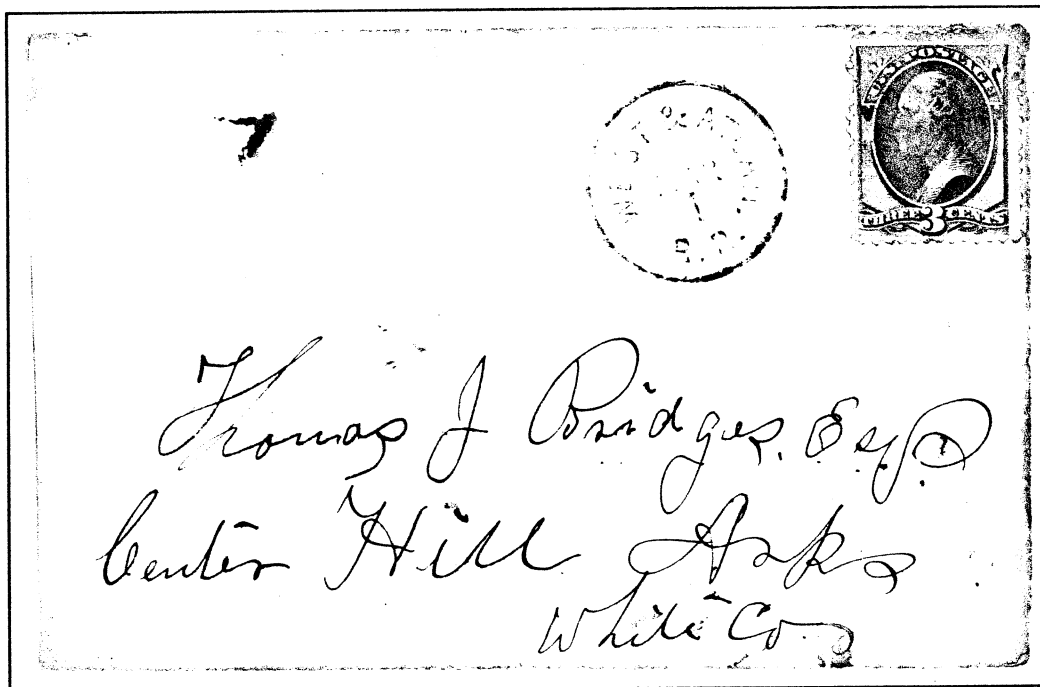 U.S. POSTAGE
THREE 3 CENTS
WEST & ATLAN
1
R.O.
Thomas J Bridges. Esqr.
Center Hill Arks
White Co